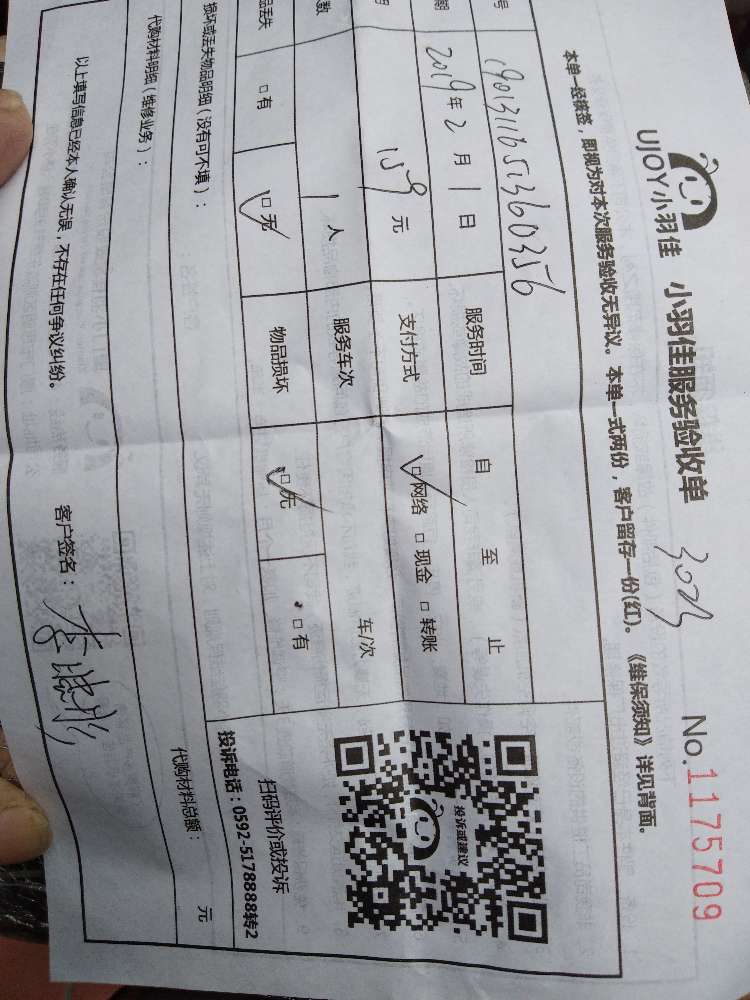 UJOY小羽佳 小羽佳服务验收单 3023 No.1175709
本单一经接签，即视为对本次服务验收无异议。本单一式两份，客户留存一份(红)。《维保须知》详见背面。
号
期 2019年2月1日 服务时间 自 至 止
159元 支付方式 ☑网络 □现金 □转账
数 1人 服务车次 车/次
品丢失 □有 ☑无 物品损坏 ☑无 □有
投诉或建议
扫码评价或投诉
投诉电话：0592-5178888转2
损坏或丢失物品明细（没有可不填）：
代购材料明细（维修业务）：
代购材料总额： 元
以上填写信息已经本人确认无误，不存在任何争议纠纷。 客户签名：